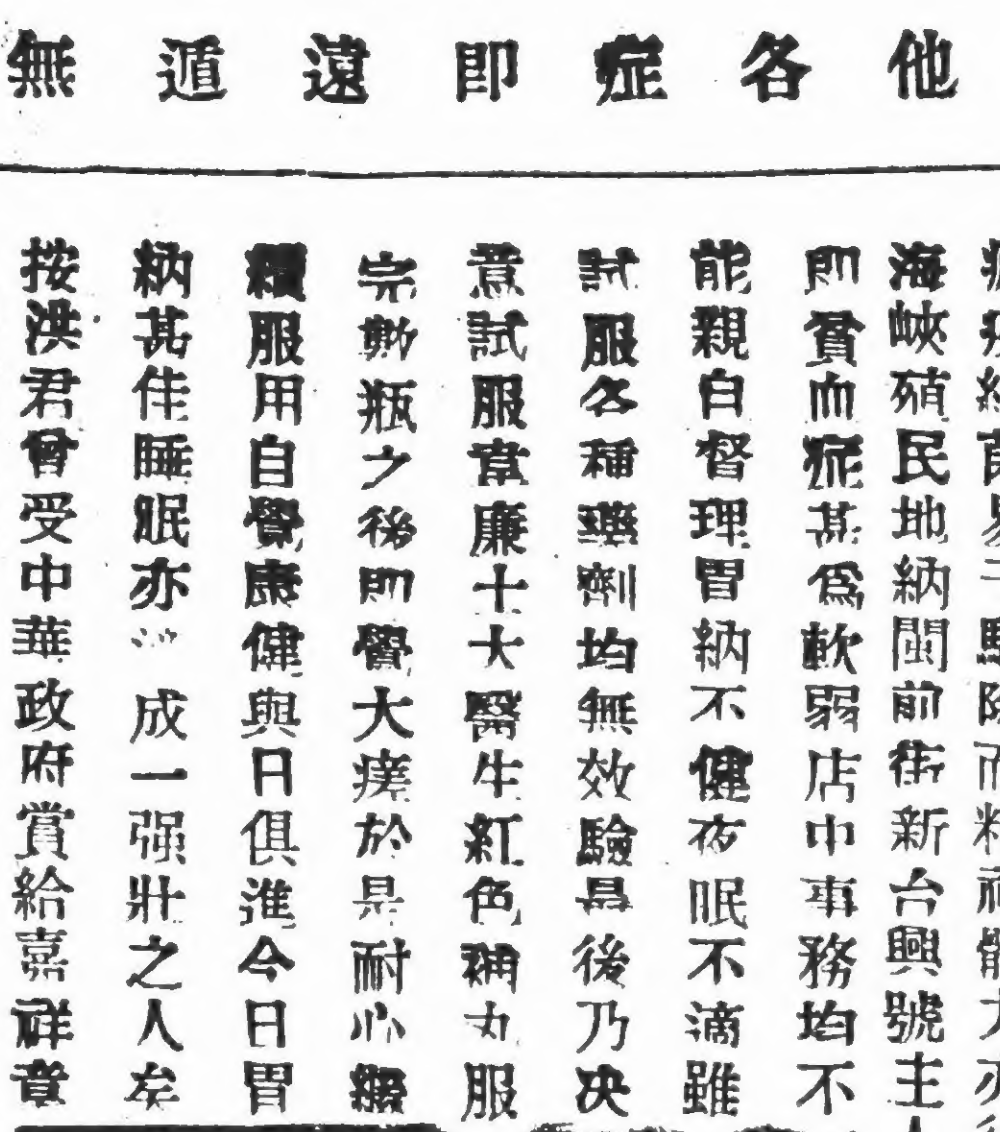 他各症即遠遁無
海峽殖民地納閩前街新台興號主人
即貧血症甚爲軟弱店中事務均不
能親自督理胃納不健夜眠不適雖
試服各種藥劑均無效驗最後乃决
意試服韋廉士大醫生紅色補丸服
完數瓶之後即覺大瘥於是耐心繼
續服用自覺康健與日俱進今日胃
納甚佳睡眠亦 成一强壯之人矣
按洪君曾受中華政府賞給嘉祥章